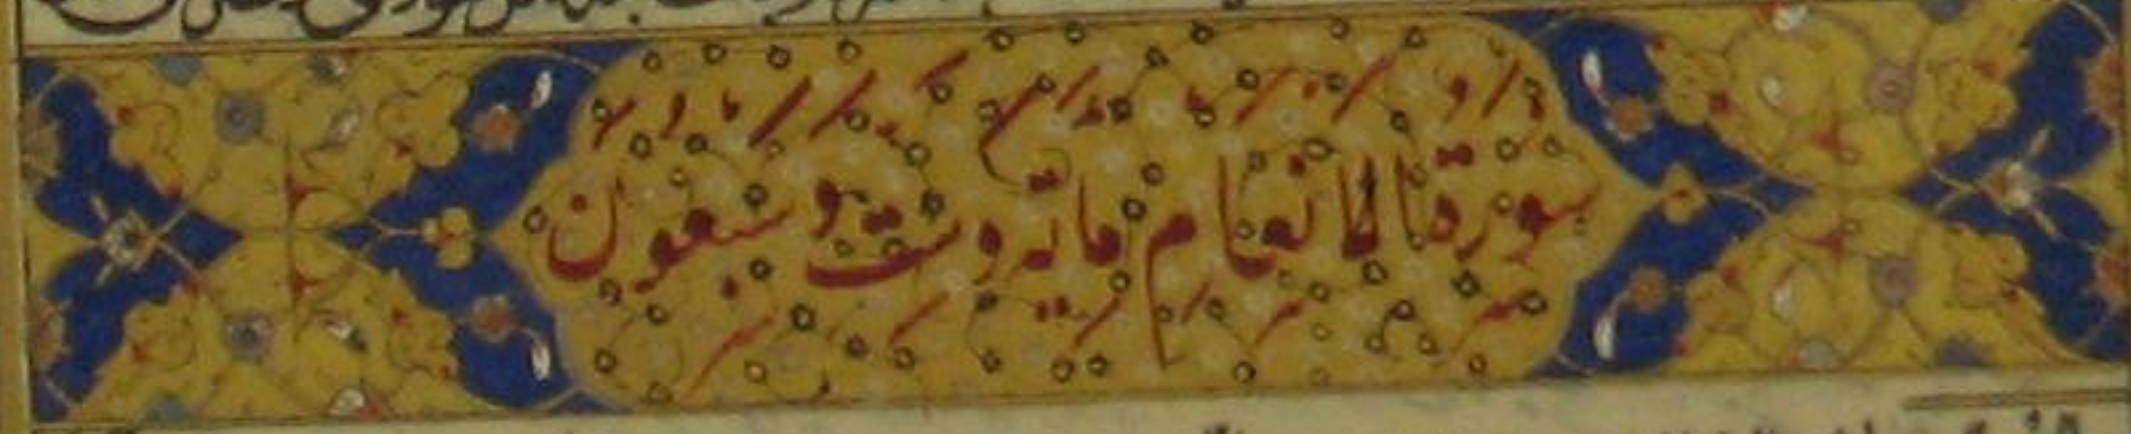 سورة الانعام مائة وست وسبعون